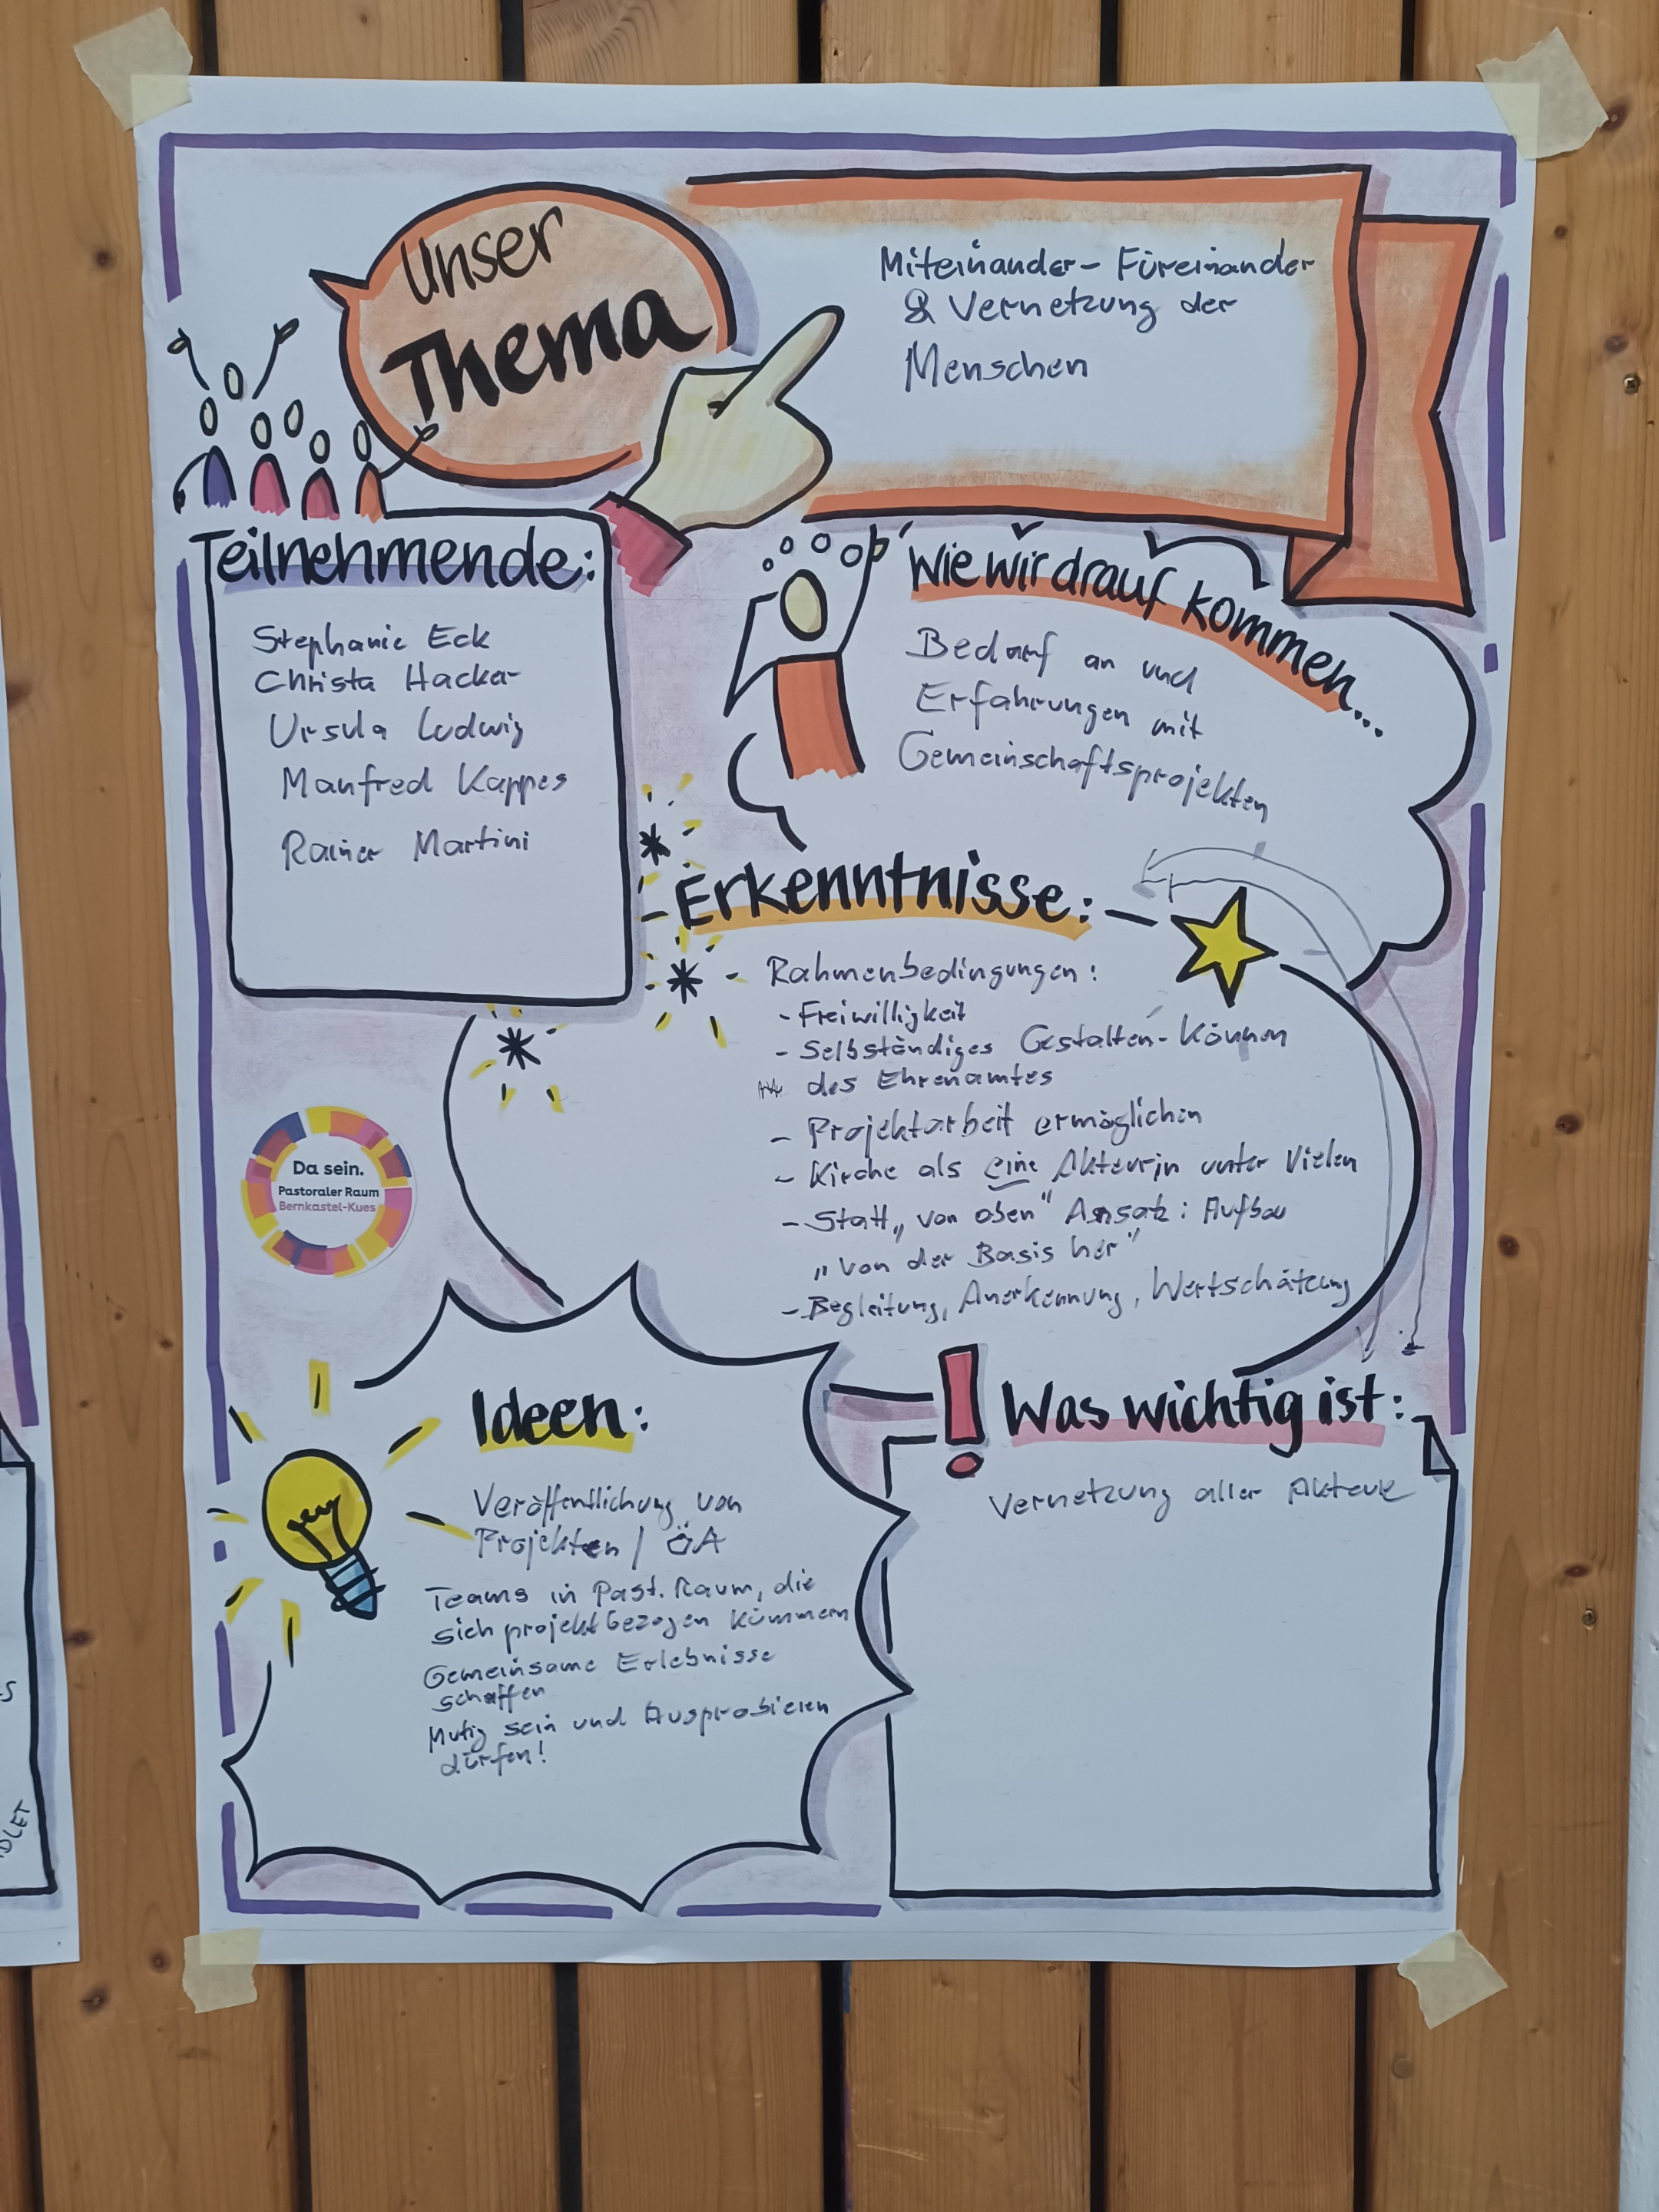 Unser
Thema
Miteinander - Füreinander
& Vernetzung der
Menschen
Teilnehmende:
Stephanie Eck
Christa Hacker
Ursula Ludwig
Manfred Kappes
Rainer Martini
Wie wir drauf kommen...
Bedarf an und
Erfahrungen mit
Gemeinschaftsprojekten
Erkenntnisse:
- Rahmenbedingungen:
- Freiwilligkeit
- Selbständiges Gestalten-Können
des Ehrenamtes
- Projektarbeit ermöglichen
- Kirche als eine Akteurin unter Vielen
- Statt „von oben" Ansatz: Aufbau
„von der Basis her"
- Begleitung, Anerkennung, Wertschätzung
Da sein.
Pastoraler Raum
Bernkastel-Kues
Ideen:
Veröffentlichung von
Projekten / ÖA
Teams in Past. Raum, die
sich projektbezogen kümmern
Gemeinsame Erlebnisse
schaffen
Mutig sein und Ausprobieren
dürfen!
! Was wichtig ist:
Vernetzung aller Akteure